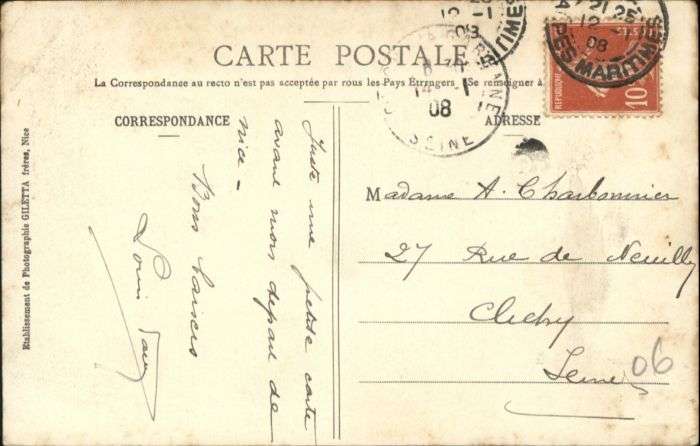 CARTE POSTALE
La Correspondance au recto n'est pas acceptée par tous les Pays Etrangers. (Se renseigner à
CORRESPONDANCE
ADRESSE
Juste une petite carte
avant mon départ de
Nice -
Bons baisers
Louis
Madame A. Charbonnier
27 Rue de Neuilly
Clichy
Seine
06
Etablissement de Photographie GILETTA frères, Nice
12 -1
08
ALPES MARITIMES
21 25
12 -
08
ALPES MARITIMES
REPUBLIQUE
10
14 -1
08
SEINE